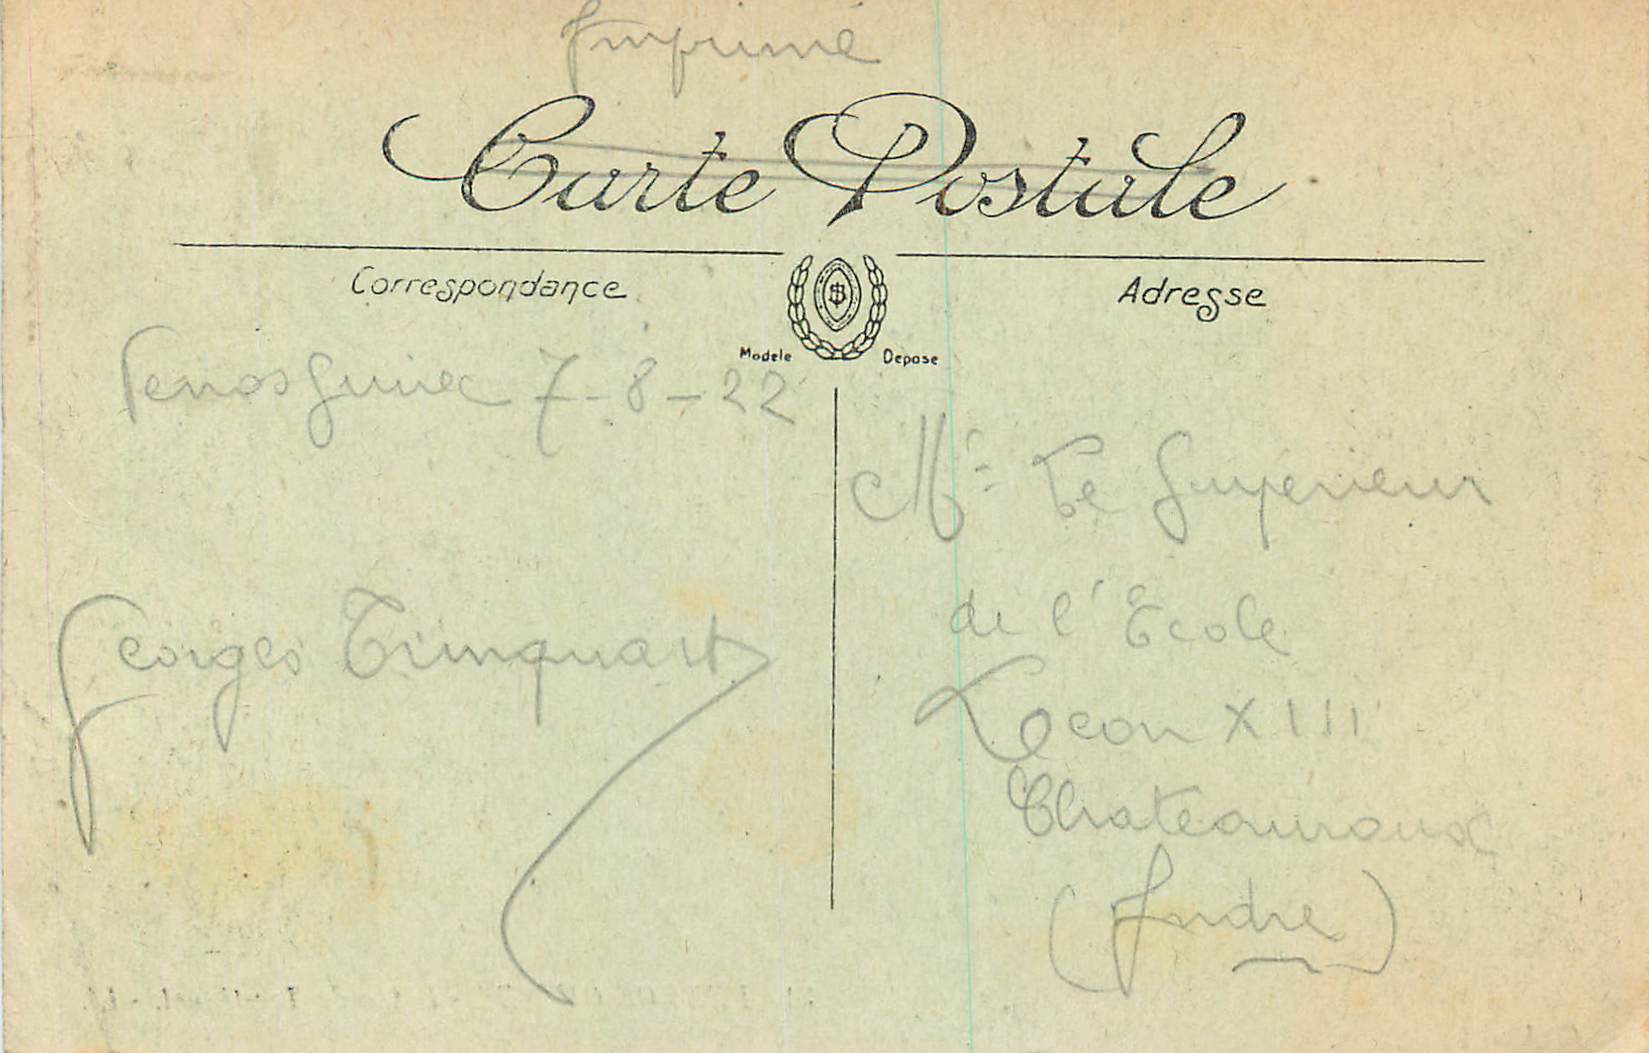 Imprimé
Carte Postale
Correspondance
Adresse
Modèle Déposé
Perros Guirec 7-8-22
Georges Trinquart
Mr Le Superieur
de l'Ecole
Leon XIII
Chateauroux
(Indre)